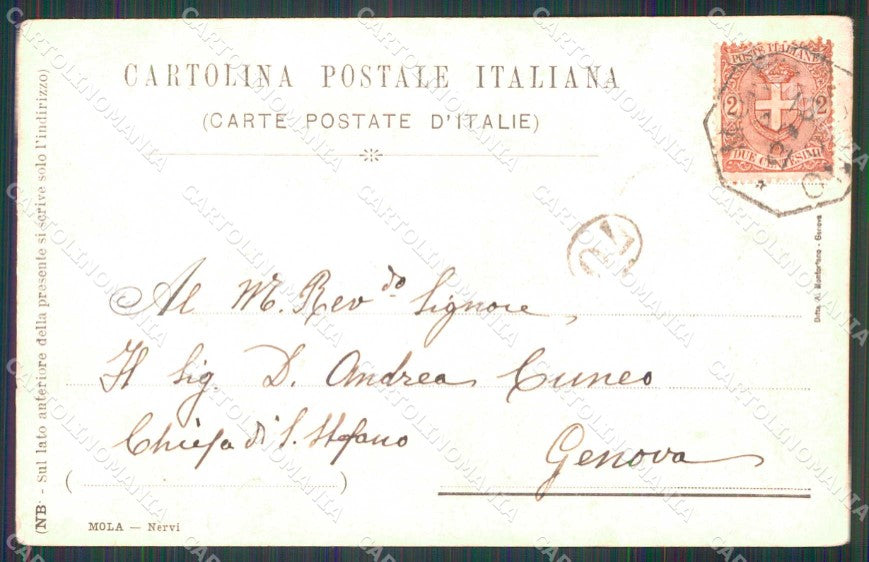 CARTOLINA POSTALE ITALIANA
(CARTE POSTATE D'ITALIE)
POSTE ITALIANE
2 2
DUE CENTESIMI
Al M. Rev.do Signore,
Il Sig. D. Andrea Cuneo
Chiesa di S. Stefano
Genova
( )
MOLA — Nervi
(NB - sul lato anteriore della presente si scrive solo l'indirizzo)
Ditta A. Montorfano - Genova
CARTOLINOMANIA